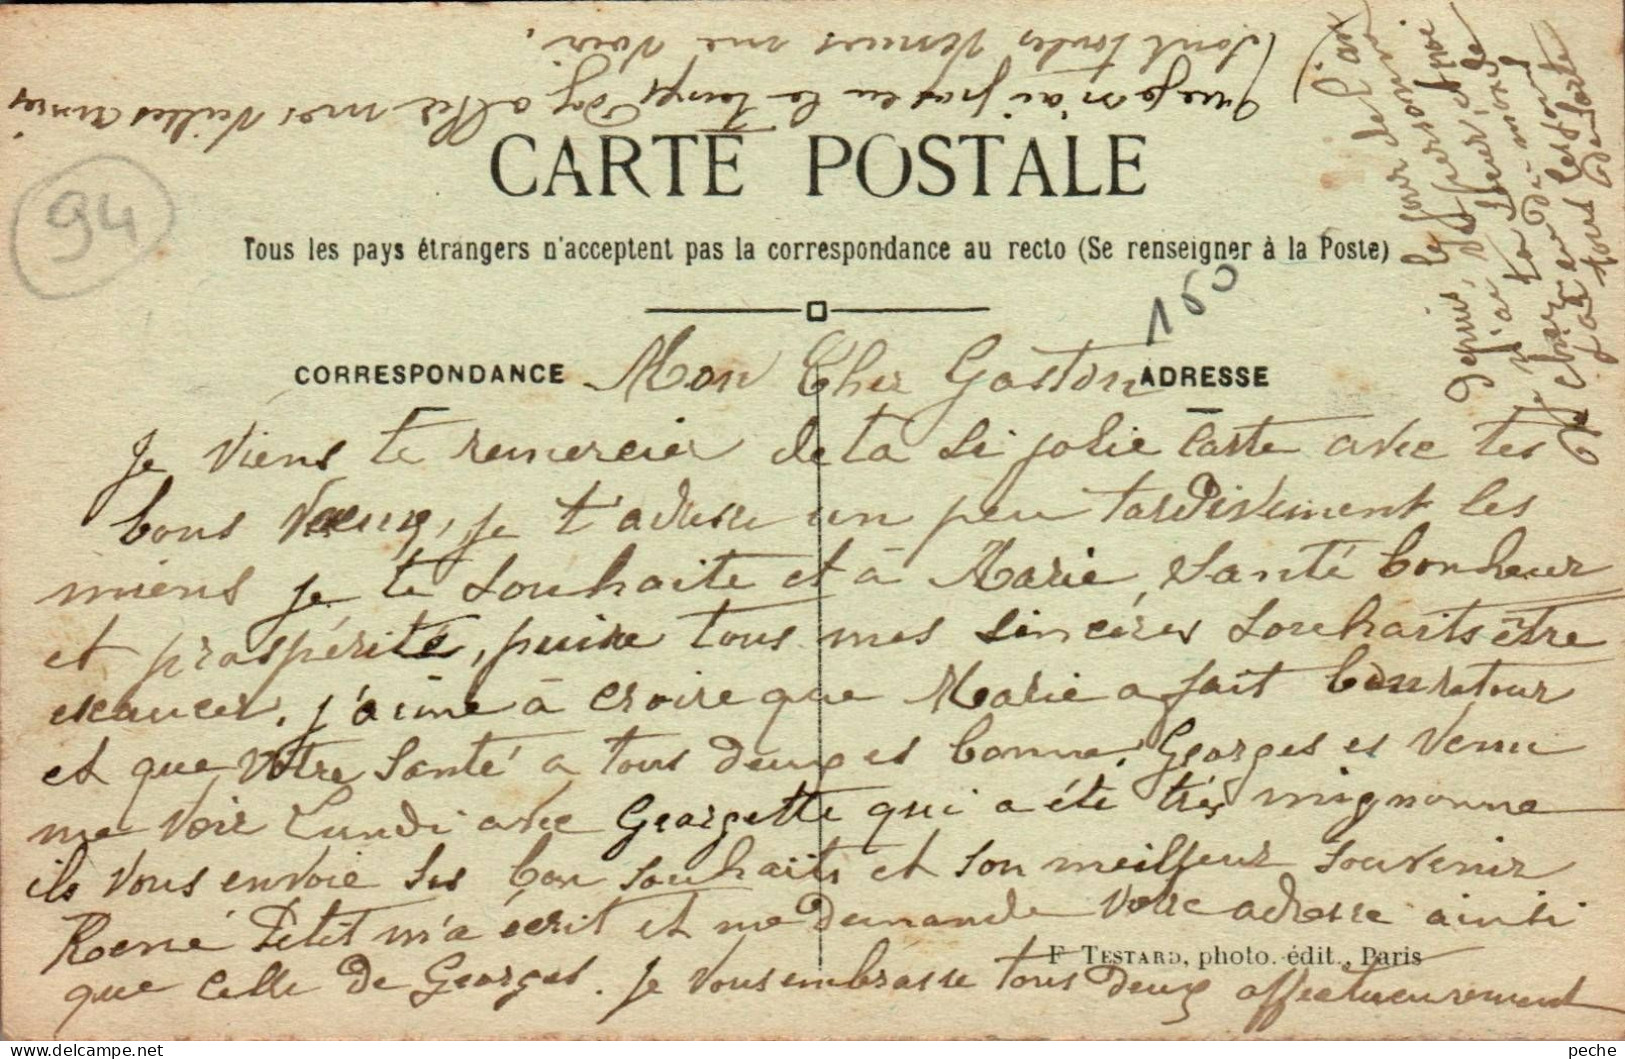 94
CARTE POSTALE
Tous les pays étrangers n'acceptent pas la correspondance au recto (Se renseigner à la Poste)
160
CORRESPONDANCE
ADRESSE
Mon Cher Gaston
Je viens te remercier de ta si jolie carte avec tes
bons vœux, je t'adresse un peu tardivement les
miens je te souhaite et à Marie, Santé bonheur
et prospérité, puisse tous mes sincères souhaits être
exaucer. j'aime à croire que Marie a fait bon retour
et que votre santé a tous deux es bonne. Georges es venu
me voir Lundi avec Georgette qui a été très mignonne
ils vous envoie ses bon souhaits et son meilleur souvenir
René Petit m'a écrit et me demande votre adresse ainsi
que celle de Georges. je vous embrasse tous deux affectueusement
F. TESTARD, photo. édit., Paris
depuis le jour de l'an
j'ai
que je n'ai pas eu le temps
mes vieilles amies
sont toutes venues me voir.
peche